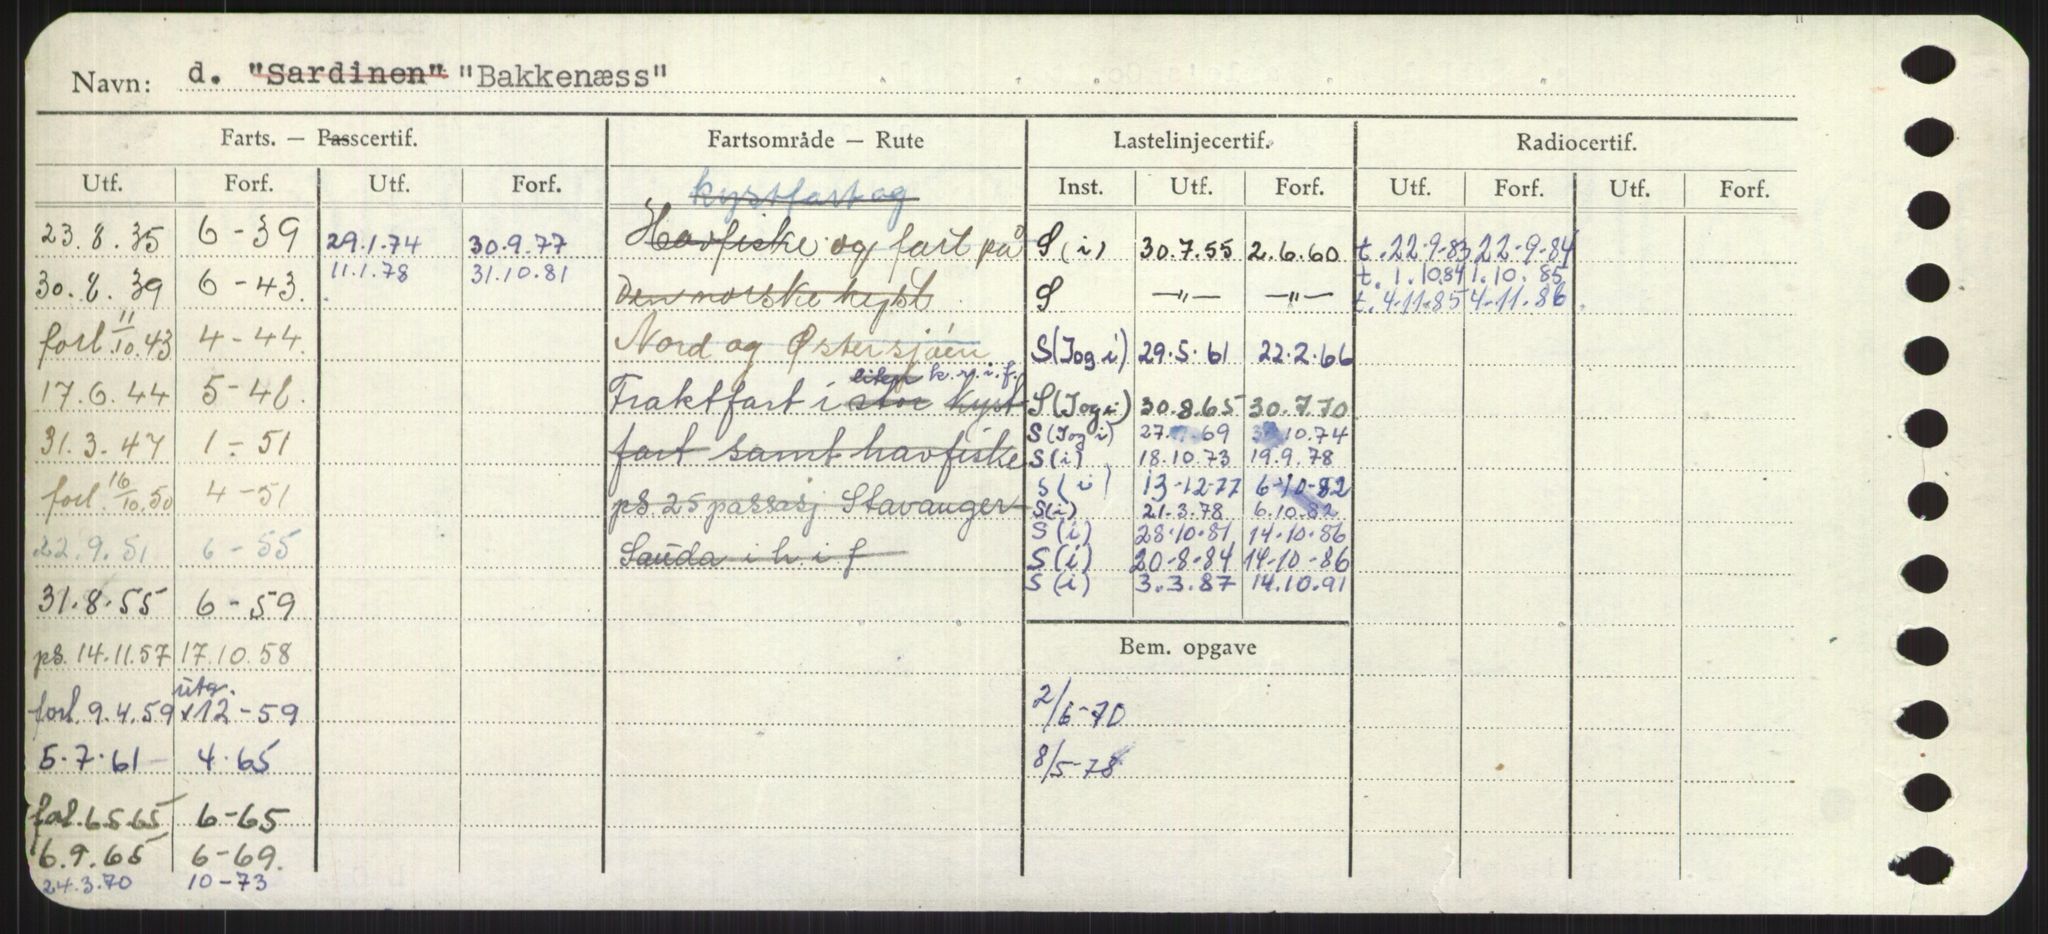 Navn: d. "Sardinen" "Bakkenæss"
Farts. — Passcertif. Fartsområde — Rute Lastelinjecertif. Radiocertif.
Utf. Forf. Utf. Forf. Inst. Utf. Forf. Utf. Forf. Utf. Forf.
kystfart og
23.8.35 6-39 29.1.74 30.9.77 Havfiske og fart på S (i) 30.7.55 2.6.60 t. 22-9-83 22-9-84
11.1.78 31.10.81 t. 1.10.84 1.10.85
30.8.39 6-43. Den norske kyst S —"— —"— t. 4-11-85 4-11-86
forl 11/10.43 4-44. Nord og Østersjøen S (I og i) 29.5.61 22.2.66
liten k.v.i.f.
17.6.44 5-48. Fraktfart i stor kyst S (I og i) 30.8.65 30.7.70
31.3.47 1-51 fart samt havfiske S (I og i) 27. 69 10.74
S (i) 18.10.73 19.9.78
forl. 16/10.50 4-51 ps 25 passasj Stavanger S (i) 13-12-77 6-10-82
S (i) 21.3.78 6.10.82
22.9.51 6-55 Sauda i h.i.f S (i) 28.10.81 14.10.86
S (i) 20-8-84 14-10-86
31.8.55 6-59 S (i) 3.3.87 14.10.91
ps. 14.11.57 17.10.58 Bem. opgave
utg.
forl. 9.4.59 12-59 2/6-70
5.7.61 4.65 8/5-78
forl. 6.5.65 6-65
6.9.65 6-69.
24.3.70 10-73